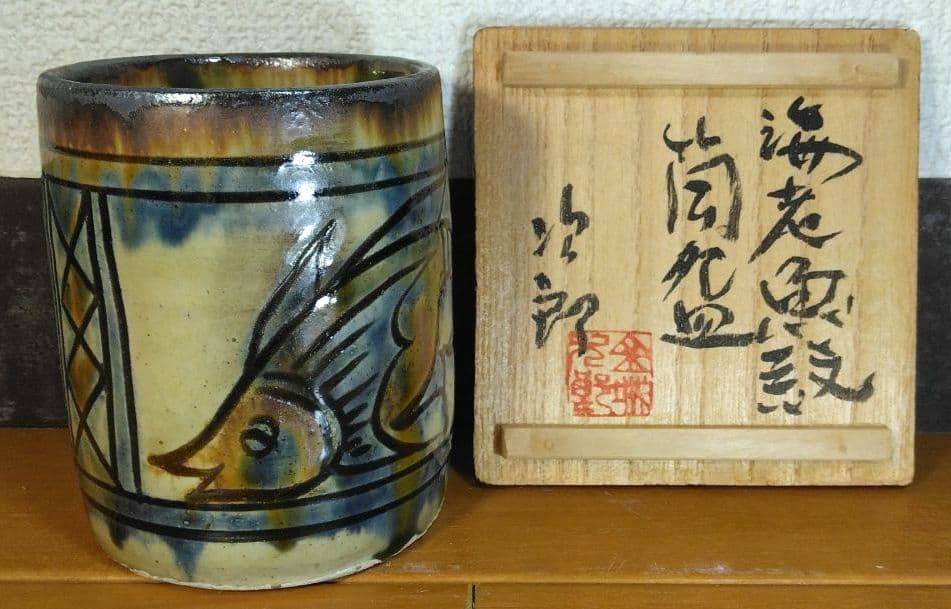 海老魚紋
筒盌
次郎
金城
次郎